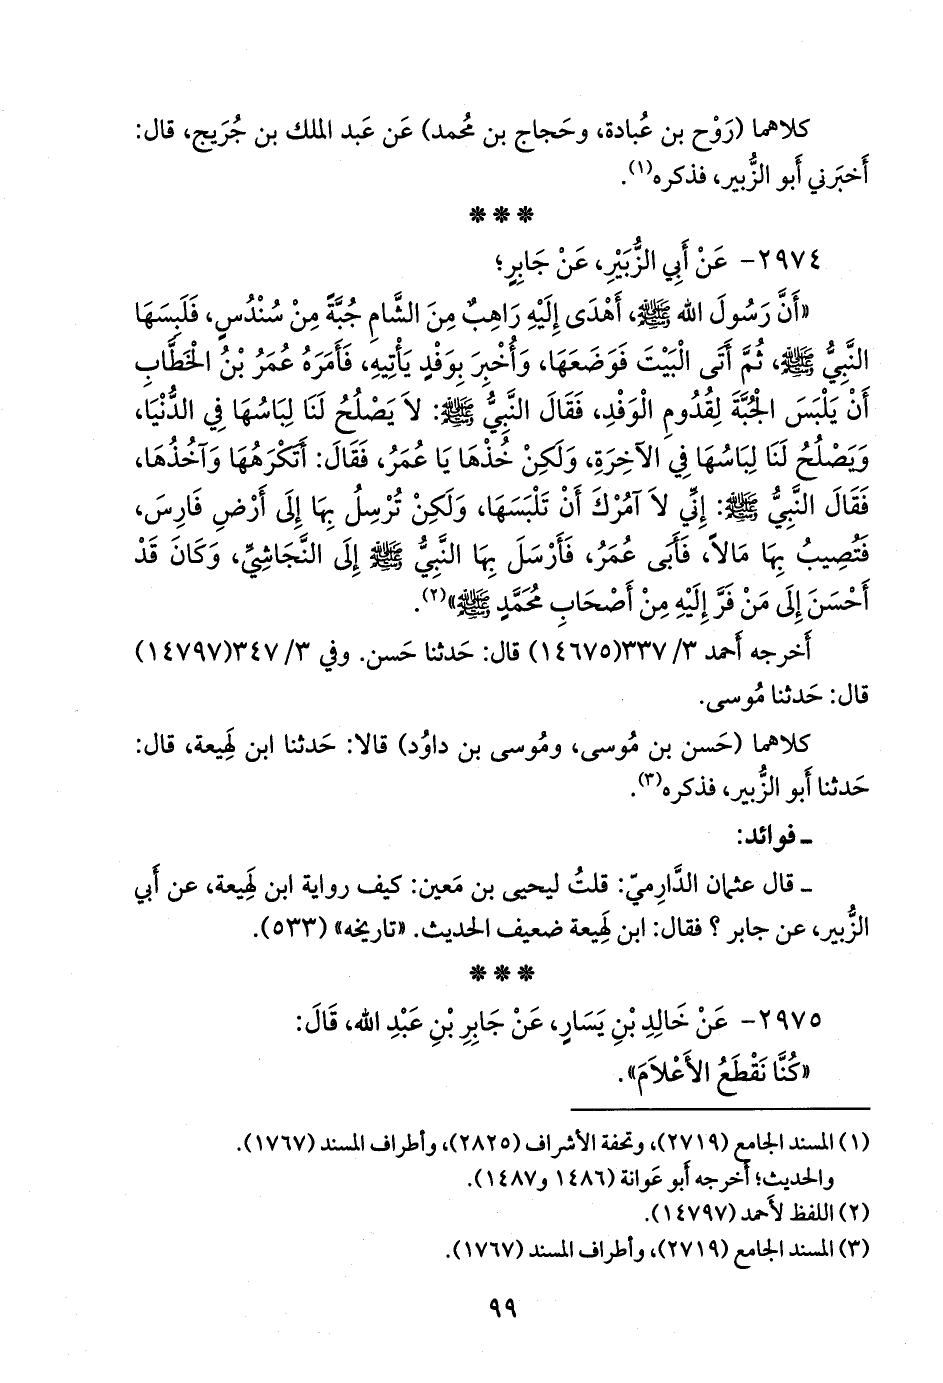 كلاهما (رَوْح بن عُبادة، وحَجاج بن مُحمد) عَن عَبد الملك بن جُرَيج، قال:
أَخبَرني أَبو الزُّبير، فذكره(١).
***
٢٩٧٤- عَنْ أَبِي الزُّبَيْرِ، عَنْ جَابِرٍ؛
«أَنَّ رَسُولَ الله ﷺ، أَهْدَى إِلَيْهِ رَاهِبٌ مِنَ الشَّامِ جُبَّةً مِنْ سُنْدُسٍ، فَلَبِسَهَا
النَّبِيُّ ﷺ، ثُمَّ أَتَى الْبَيْتَ فَوَضَعَهَا، وَأُخْبِرَ بِوَفْدٍ يَأْتِيهِ، فَأَمَرَهُ عُمَرُ بْنُ الْخَطَّابِ
أَنْ يَلْبَسَ الْجُبَّةَ لِقُدُومِ الْوَفْدِ، فَقَالَ النَّبِيُّ ﷺ: لاَ يَصْلُحُ لَنَا لِبَاسُهَا فِي الدُّنْيَا،
وَيَصْلُحُ لَنَا لِبَاسُهَا فِي الآخِرَةِ، وَلَكِنْ خُذْهَا يَا عُمَرُ، فَقَالَ: أَتَكْرَهُهَا وَآخُذُهَا،
فَقَالَ النَّبِيُّ ﷺ: إِنِّي لاَ آمُرُكَ أَنْ تَلْبَسَهَا، وَلَكِنْ تُرْسِلُ بِهَا إِلَى أَرْضِ فَارِسَ،
فَتُصِيبُ بِهَا مَالاً، فَأَبَى عُمَرُ، فَأَرْسَلَ بِهَا النَّبِيُّ ﷺ إِلَى النَّجَاشِيِّ، وَكَانَ قَدْ
أَحْسَنَ إِلَى مَنْ فَرَّ إِلَيْهِ مِنْ أَصْحَابِ مُحَمَّدٍ ﷺ»(٢).
أَخرجه أَحمد ٣/ ٣٣٧(١٤٦٧٥) قال: حَدثنا حَسن. وفي ٣/ ٣٤٧(١٤٧٩٧)
قال: حَدثنا مُوسى.
كلاهما (حَسن بن مُوسى، ومُوسى بن داوُد) قالا: حَدثنا ابن لَهِيعة، قال:
حَدثنا أَبو الزُّبير، فذكره(٣).
ـ فوائد:
ـ قال عثمان الدَّارِميّ: قلتُ ليحيى بن مَعين: كيف رواية ابن لَهِيعة، عن أَبي
الزُّبير، عن جابر؟ فقال: ابن لَهِيعة ضعيف الحديث. «تاريخه» (٥٣٣).
***
٢٩٧٥- عَنْ خَالِدِ بْنِ يَسَارٍ، عَنْ جَابِرِ بْنِ عَبْدِ الله، قَالَ:
«كُنَّا نَقْطَعُ الأَعْلاَمَ».
(١) المسند الجامع (٢٧١٩)، وتحفة الأشراف (٢٨٢٥)، وأطراف المسند (١٧٦٧).
والحديث؛ أَخرجه أَبو عَوانة (١٤٨٦ و١٤٨٧).
(٢) اللفظ لأَحمد (١٤٧٩٧).
(٣) المسند الجامع (٢٧١٩)، وأطراف المسند (١٧٦٧).
٩٩